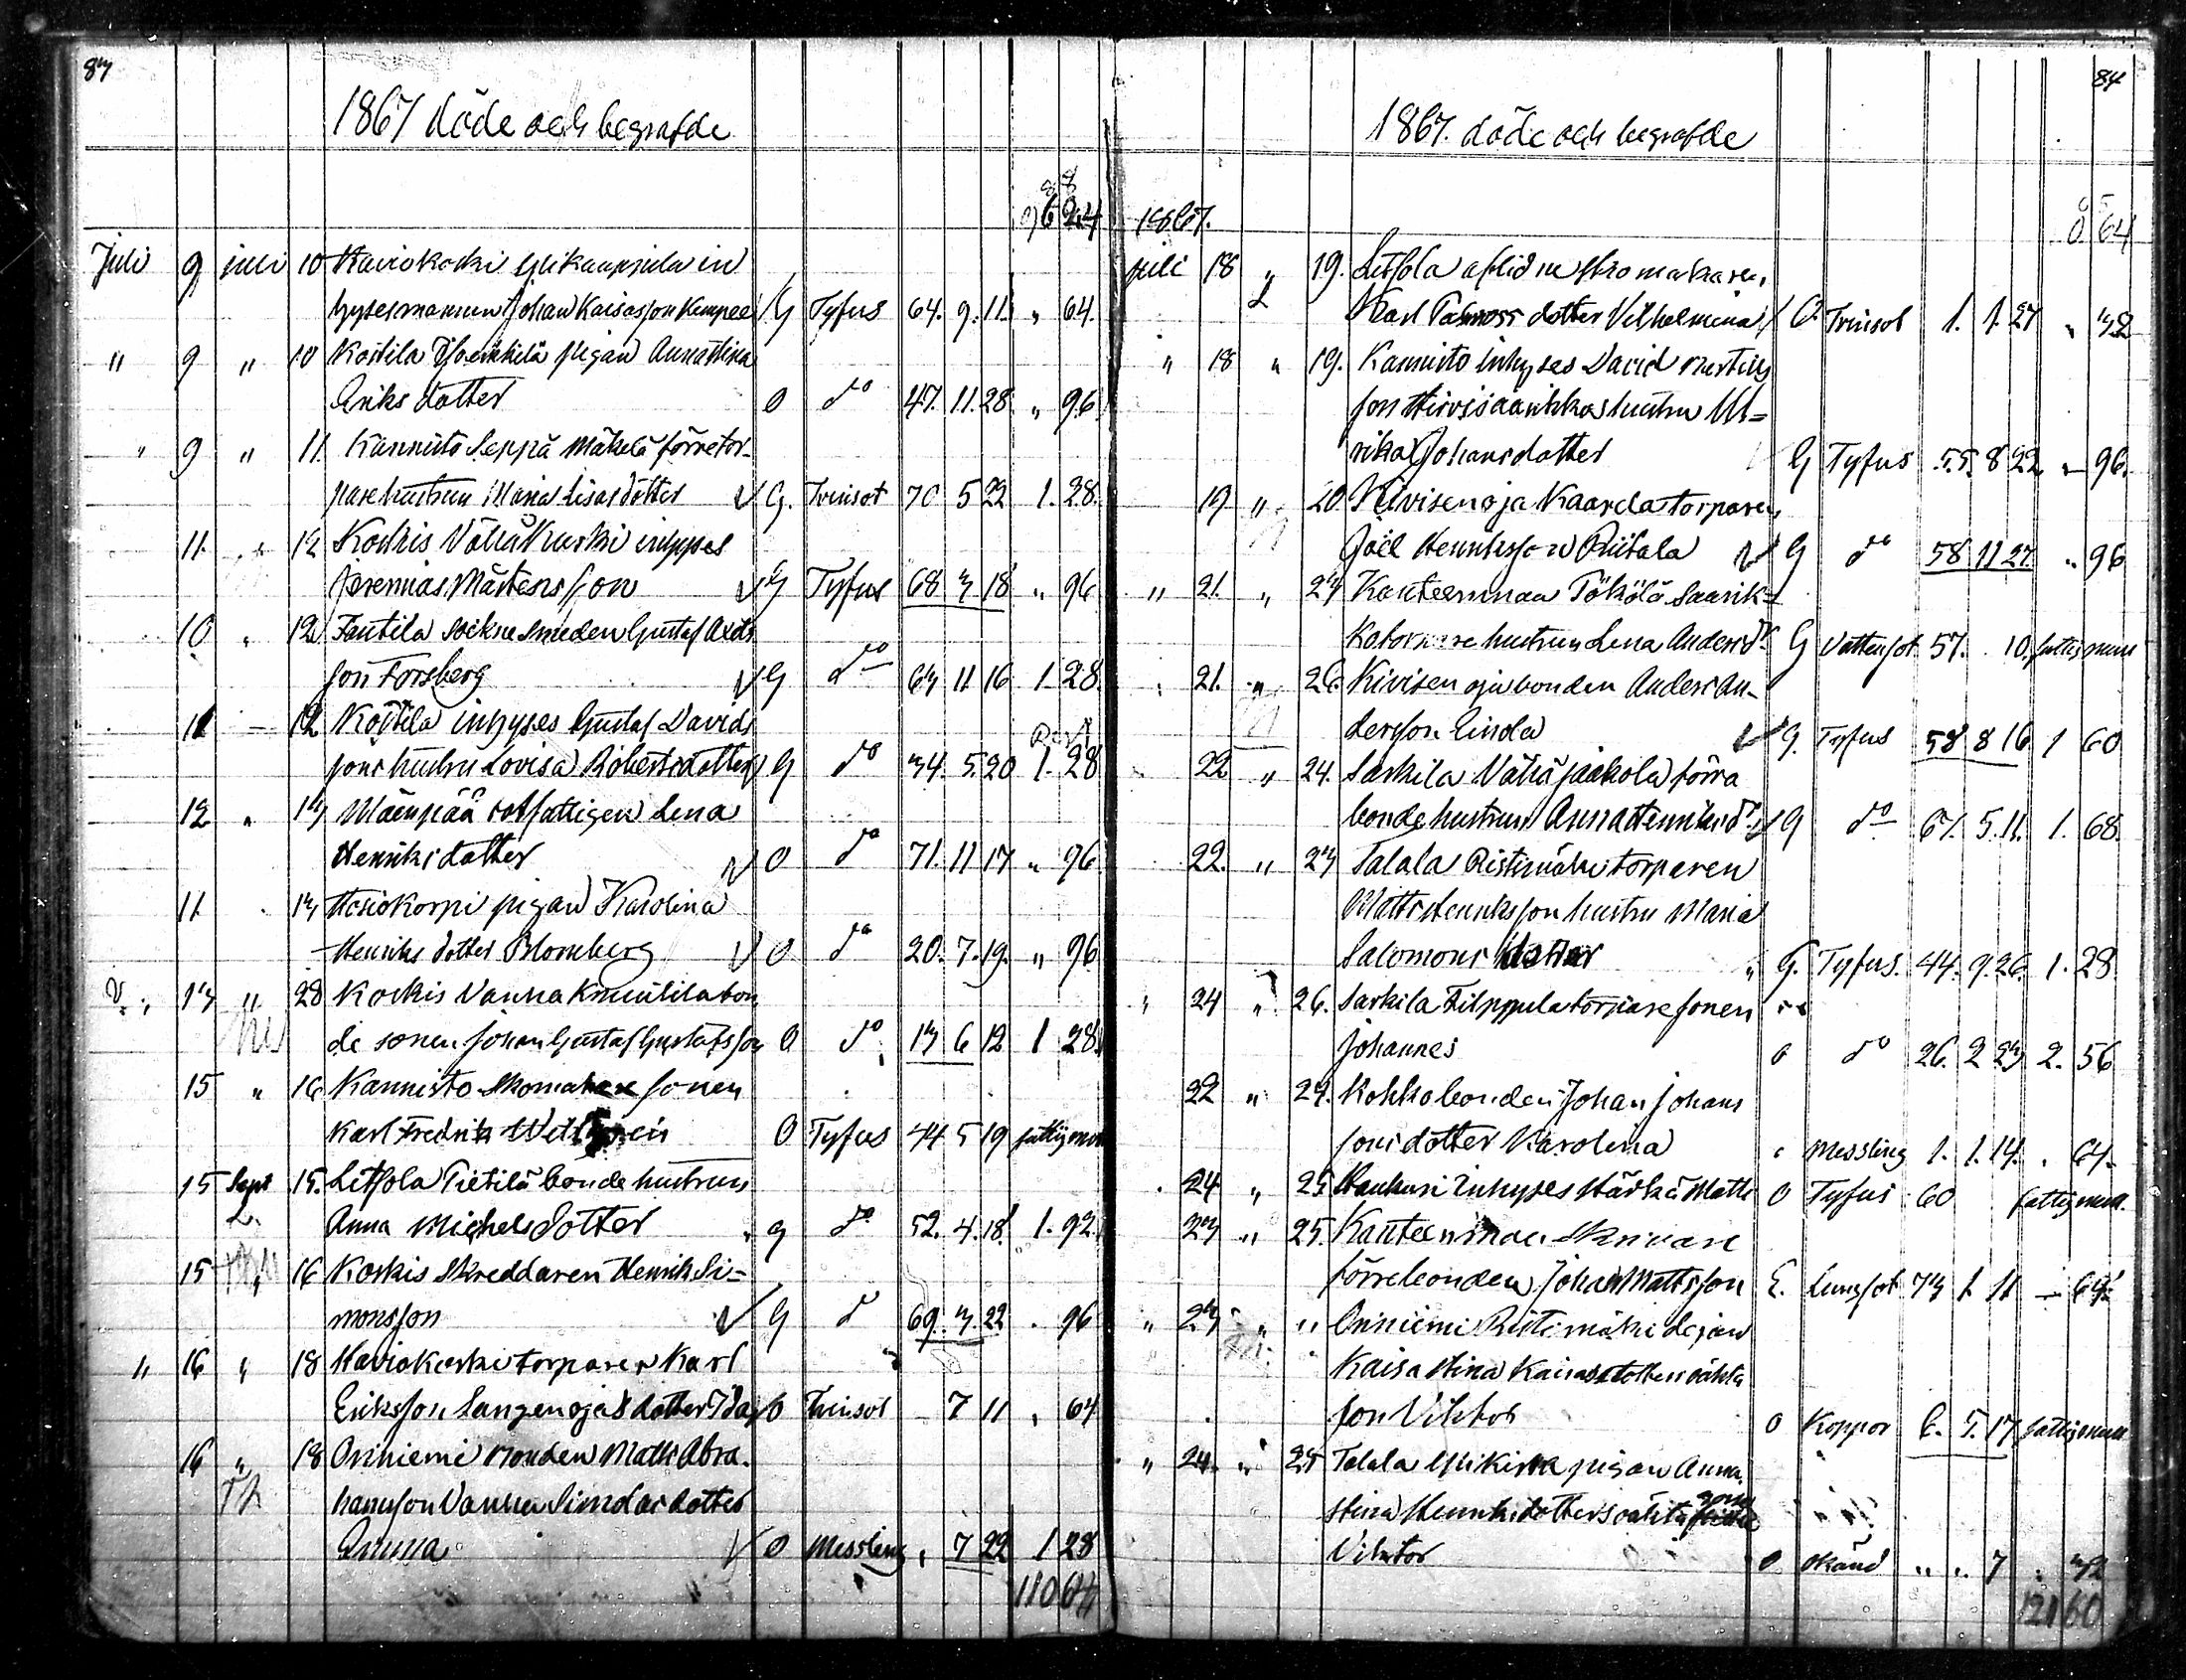 87
1867 döde och begrafde
96 24
Juli 9 juli 10 Haviokoski Ylikaupila in
hysesmannen Johan Kaisasson Kempee G Tyfus 64. 9. 11. " 64.
" 9 " 10 Kostila pigan Anna Stina
Eriks dotter O do 47. 11. 28. " 96.
" 9 " 11. Kannisto Seppä Mäkelä förre tor-
pare hustrun Maria Lisas dotter G. Tvinsot 70 5 22 1. 28.
11. " 12 Koskis Vähä Kurki inhyses
Jeremias Mårtensson G Tyfus 68 3 18 " 96
10 " 12 Fantila sockne smeden Gustaf
son Forsberg G do 63 11 16 1 28.
11 – 12 Kostila inhyses Gustaf Davids
sons hustru Lovisa Robertsdotter G do 34. 5. 20 1. 28
12 " 13 Mäenpää rotfattigen Lena
Henriksdotter O do 71. 11 17 " 96
11. . 13 Hosiokorpi pigan Karolina
Henriks dotter Blomberg O do 20. 7. 19. " 96
13 " 28 Koskis Vanha Knuutila bon
de sonen Johan Gustaf Gustafsson O do 13 6 12 1 28
15 " 16 Kannisto Skomakare sonen
Karl Fredrik O Tyfus 44 5 19 fattigmun
15 Sept 15. Letsola Pietilä bonde hustrun
Anna Michels dotter G do 52. 4. 18. 1. 92.
15 " 16 Koskis Skreddaren Henrik Si-
monsson G do 69. 3. 22 . 96
" 16 " 18 Haviokoski torparen Karl
Eriksson Langenoja's dotter Ida O Tvinsot 7 11 . 64
16 " 18 Oriniemi bonden Matts Abra-
hamsson Vanha Simolas dotter
Emma O Messling . 7 22 1 28
110 64
84
1867. döde och begrafde
1867. 64
Juli 18 " 19. Letsola aflidne Skomakaren,
Karl dotter Vilhelmina O. Tvinsot 1. 1. 27 " 32
" 18 " 19. Kannisto Inhyses David
son Hirvisaarikkas hustru Ul-
rika Johansdotter G Tyfus 55. 8 22 – 96.
19 " 20 Kivisenoja Kaarela torparen
Joel Henriksson Riitala G do 58 11 27. " 96
" 21. " 23 Kanteenmaa Tökölä Saarik-
ko torpare hustrun Lena Andersdr G Vattensot 57. . 10. fattigmun
. 21. " 26. Kivisenoja bonden Anders An-
dersson Simola G. Tyfus 58 8 16 1 60
22 " 24. Sarkila Vähäjaakola förra
bonde hustrun Anna Henriksdr G do 67. 5. 11. 1. 68.
22. " 23 Talala Ristimäki torparen
Matts Henriksson hustru Maria
Salomons dotter G. Tyfus. 44. 9. 26. 1. 28
" 24 " 26. Sarkila Filppula torpare sonen
Johannes O do 26. 2 23 2. 56
22 " 24. Kohko bonden Johan Johans
sons dotter Karolina Messling 1. 1. 14. . 64.
24 " 25 Haukuri Inhyses Härkä Matts O Tyfus 60 fattigmun.
23 " 25. Kanteenmaa
förre bonden Johan Mattsson E. Lungsot 73 1 11 – 64
" 23 " " Oriniemi Ristimäki Lejan
Kaisa Stina Kaisasdotters oäkta
son Viktor O Koppor 6. 5. 17 fattigmun
" 24. " 25 Talala Ylikirra pigan Anna
Stina Henriksdotters oäkta son
Viktor O Okänd " " 7 . 32
121 60